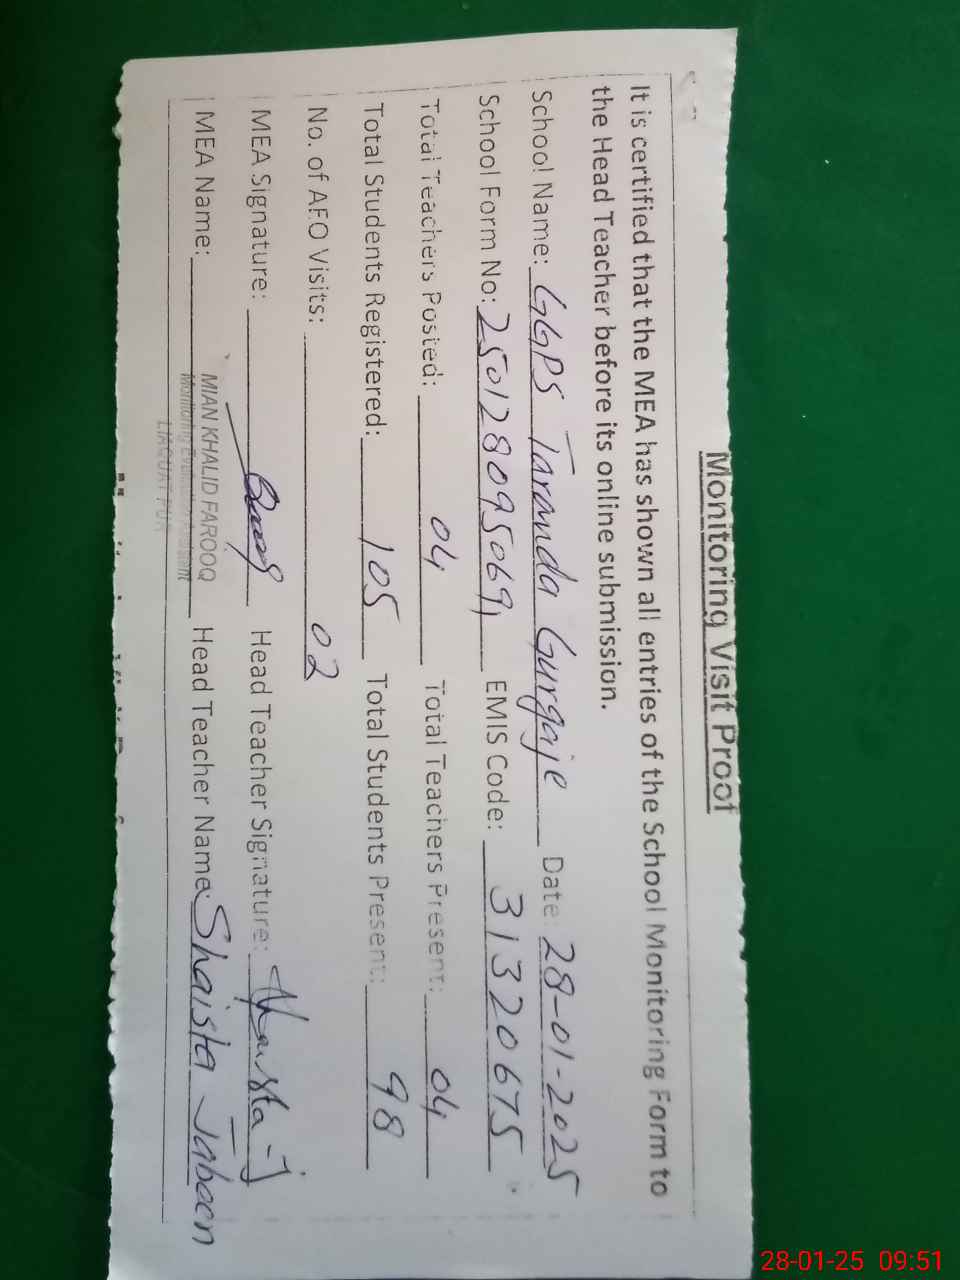 Monitoring Visit Proof
It is certified that the MEA has shown all entries of the School Monitoring Form to
the Head Teacher before its online submission.
School Name: GGPS Taranda Gurgaje Date: 28-01-2025
School Form No: 2501280950691 EMIS Code: 31320675
Total Teachers Posted: 04 Total Teachers Present: 04
Total Students Registered: 105 Total Students Present: 98
No. of AEO Visits: 02
MEA Signature: Head Teacher Signature: Shaista-J
MEA Name: MIAN KHALID FAROOQ Head Teacher Name: Shaista Jabeen
Monitoring Evaluation Assistant
LIAQUAT PUR
28-01-25 09:51